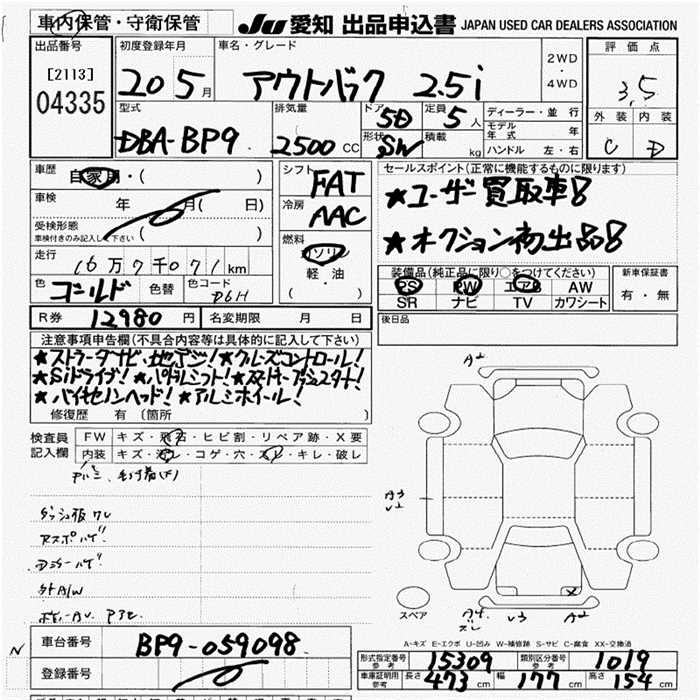 車内保管・守衛保管
JU 愛知 出品申込書 JAPAN USED CAR DEALERS ASSOCIATION
出品番号
[2113]
04335
初度登録年月
20 5月
車名・グレード
アウトバック 2.5i
2WD・4WD
評価点
3.5
外装 内装
C D
型式
DBA-BP9
排気量
2500 CC
ドア
5D
形状
SW
定員
5人
積載
kg
ディーラー・並行
モデル年式 年
ハンドル 左・右
車歴
自家用・( )
車検
年 月( 日)
受検形態
車検付きのみ記入して下さい ( )
走行
16万7千071km
色 ゴールド 色替 色コード D6H
シフト
FAT
冷房
AAC
燃料
ガソリン
軽・油
( )
セールスポイント(正常に機能するものに限ります)
★ユーザー買取車8
★オクション初出品8
装備品(純正品に限り○をつけてください)
PS PW エアB AW
SR ナビ TV カワシート
新車保証書
有・無
R券 12980円 名変期限 月 日
後日品
注意事項申告欄(不具合内容等は具体的に記入して下さい)
★ストラーダナビ、地デジ!★クルーズコントロール!
★Siドライブ!★パドルシフト!★スマートキープッシュスタート!
★バイキセノンヘッド!★アルミホイール!
修復歴 有 〔箇所 〕
検査員記入欄
FW キズ・飛石・ヒビ割・リペア跡・X要
内装 キズ・汚レ・コゲ・穴・スレ・キレ・破レ
A2
A3
U2
スペア
A4 U3 A2
ズレ
X
A-キズ E-エクボ U-凹み W-補修跡 S-サビ C-腐食 XX-交換済
N
車台番号 BP9-059098
登録番号
形式指定番号 参考 15309 類別区分番号 参考 1019
車庫証明用 参考 長さ 473 cm 幅 177 cm 高さ 154 cm